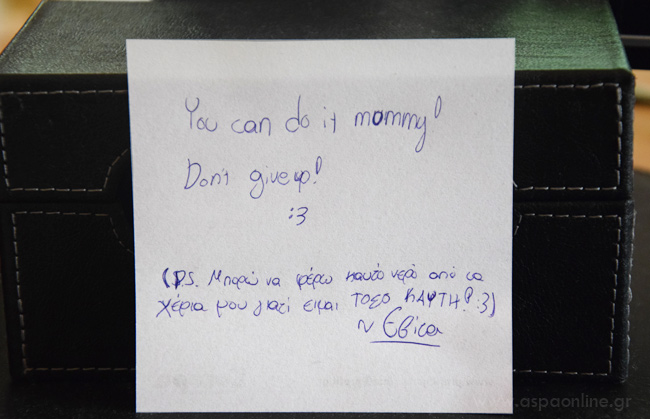 You can do it mommy!
Don't give up!
:3
(P.S. Μπορώ να φέρω καυτό νερό από τα
χέρια μου γιατί είμαι ΤΟΣΟ ΚΑΥΤΗ! :3)
~ Εβίτα
www.aspaonline.gr